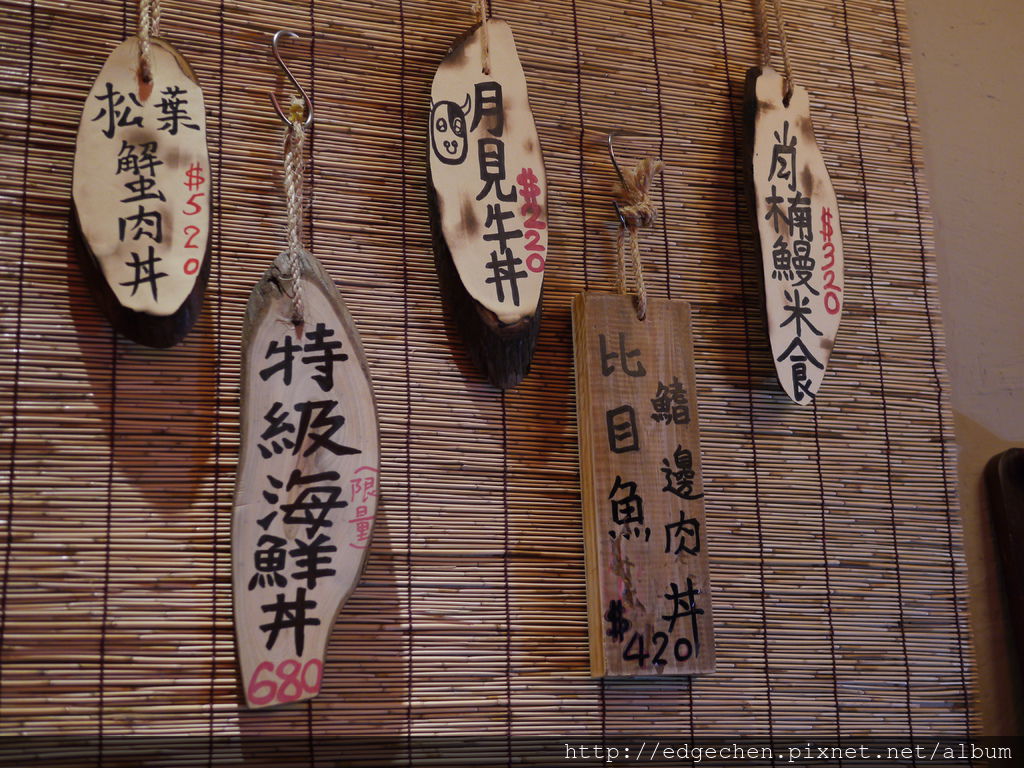 松葉
蟹肉丼
$520
特級海鮮丼
(限量)
680
月見牛丼
$220
比目魚
鰭邊肉丼
$420
肖楠鰻米食
$320
http://edgechen.pixnet.net/album